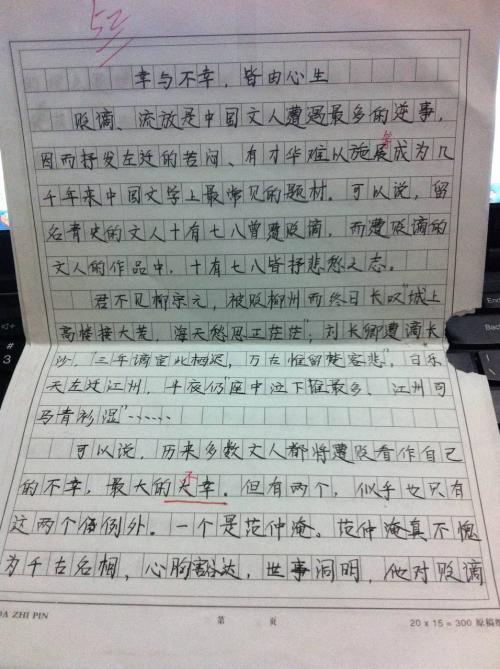 52
幸与不幸，皆由心生
贬谪、流放是中国文人遭遇最多的逆事，
因而抒发左迁的苦闷、有才华难以施展等成为几
千年来中国文学上最常见的题材。可以说，留
名青史的文人十有七八曾遭贬谪，而遭贬谪的
文人的作品中，十有七八皆抒悲愁之志。
君不见柳宗元，被贬柳州而终日长叹"城上
高楼接大荒，海天愁思正茫茫"；刘长卿遭谪长
沙，"三年谪宦此栖迟，万古惟留楚客悲"，白乐
天左迁江州，半夜仍"座中泣下谁最多，江州司
马青衫湿"……
可以说，历来多数文人都将遭贬看作自己
的不幸，最大的不幸。但有两个，似乎也只有
这两个值例外。一个是范仲淹。范仲淹真不愧
为千古名相，心胸豁达，世事洞明，他对贬谪
DA ZHI PIN
第 页
20 x 15 = 300 原稿
End
#
3